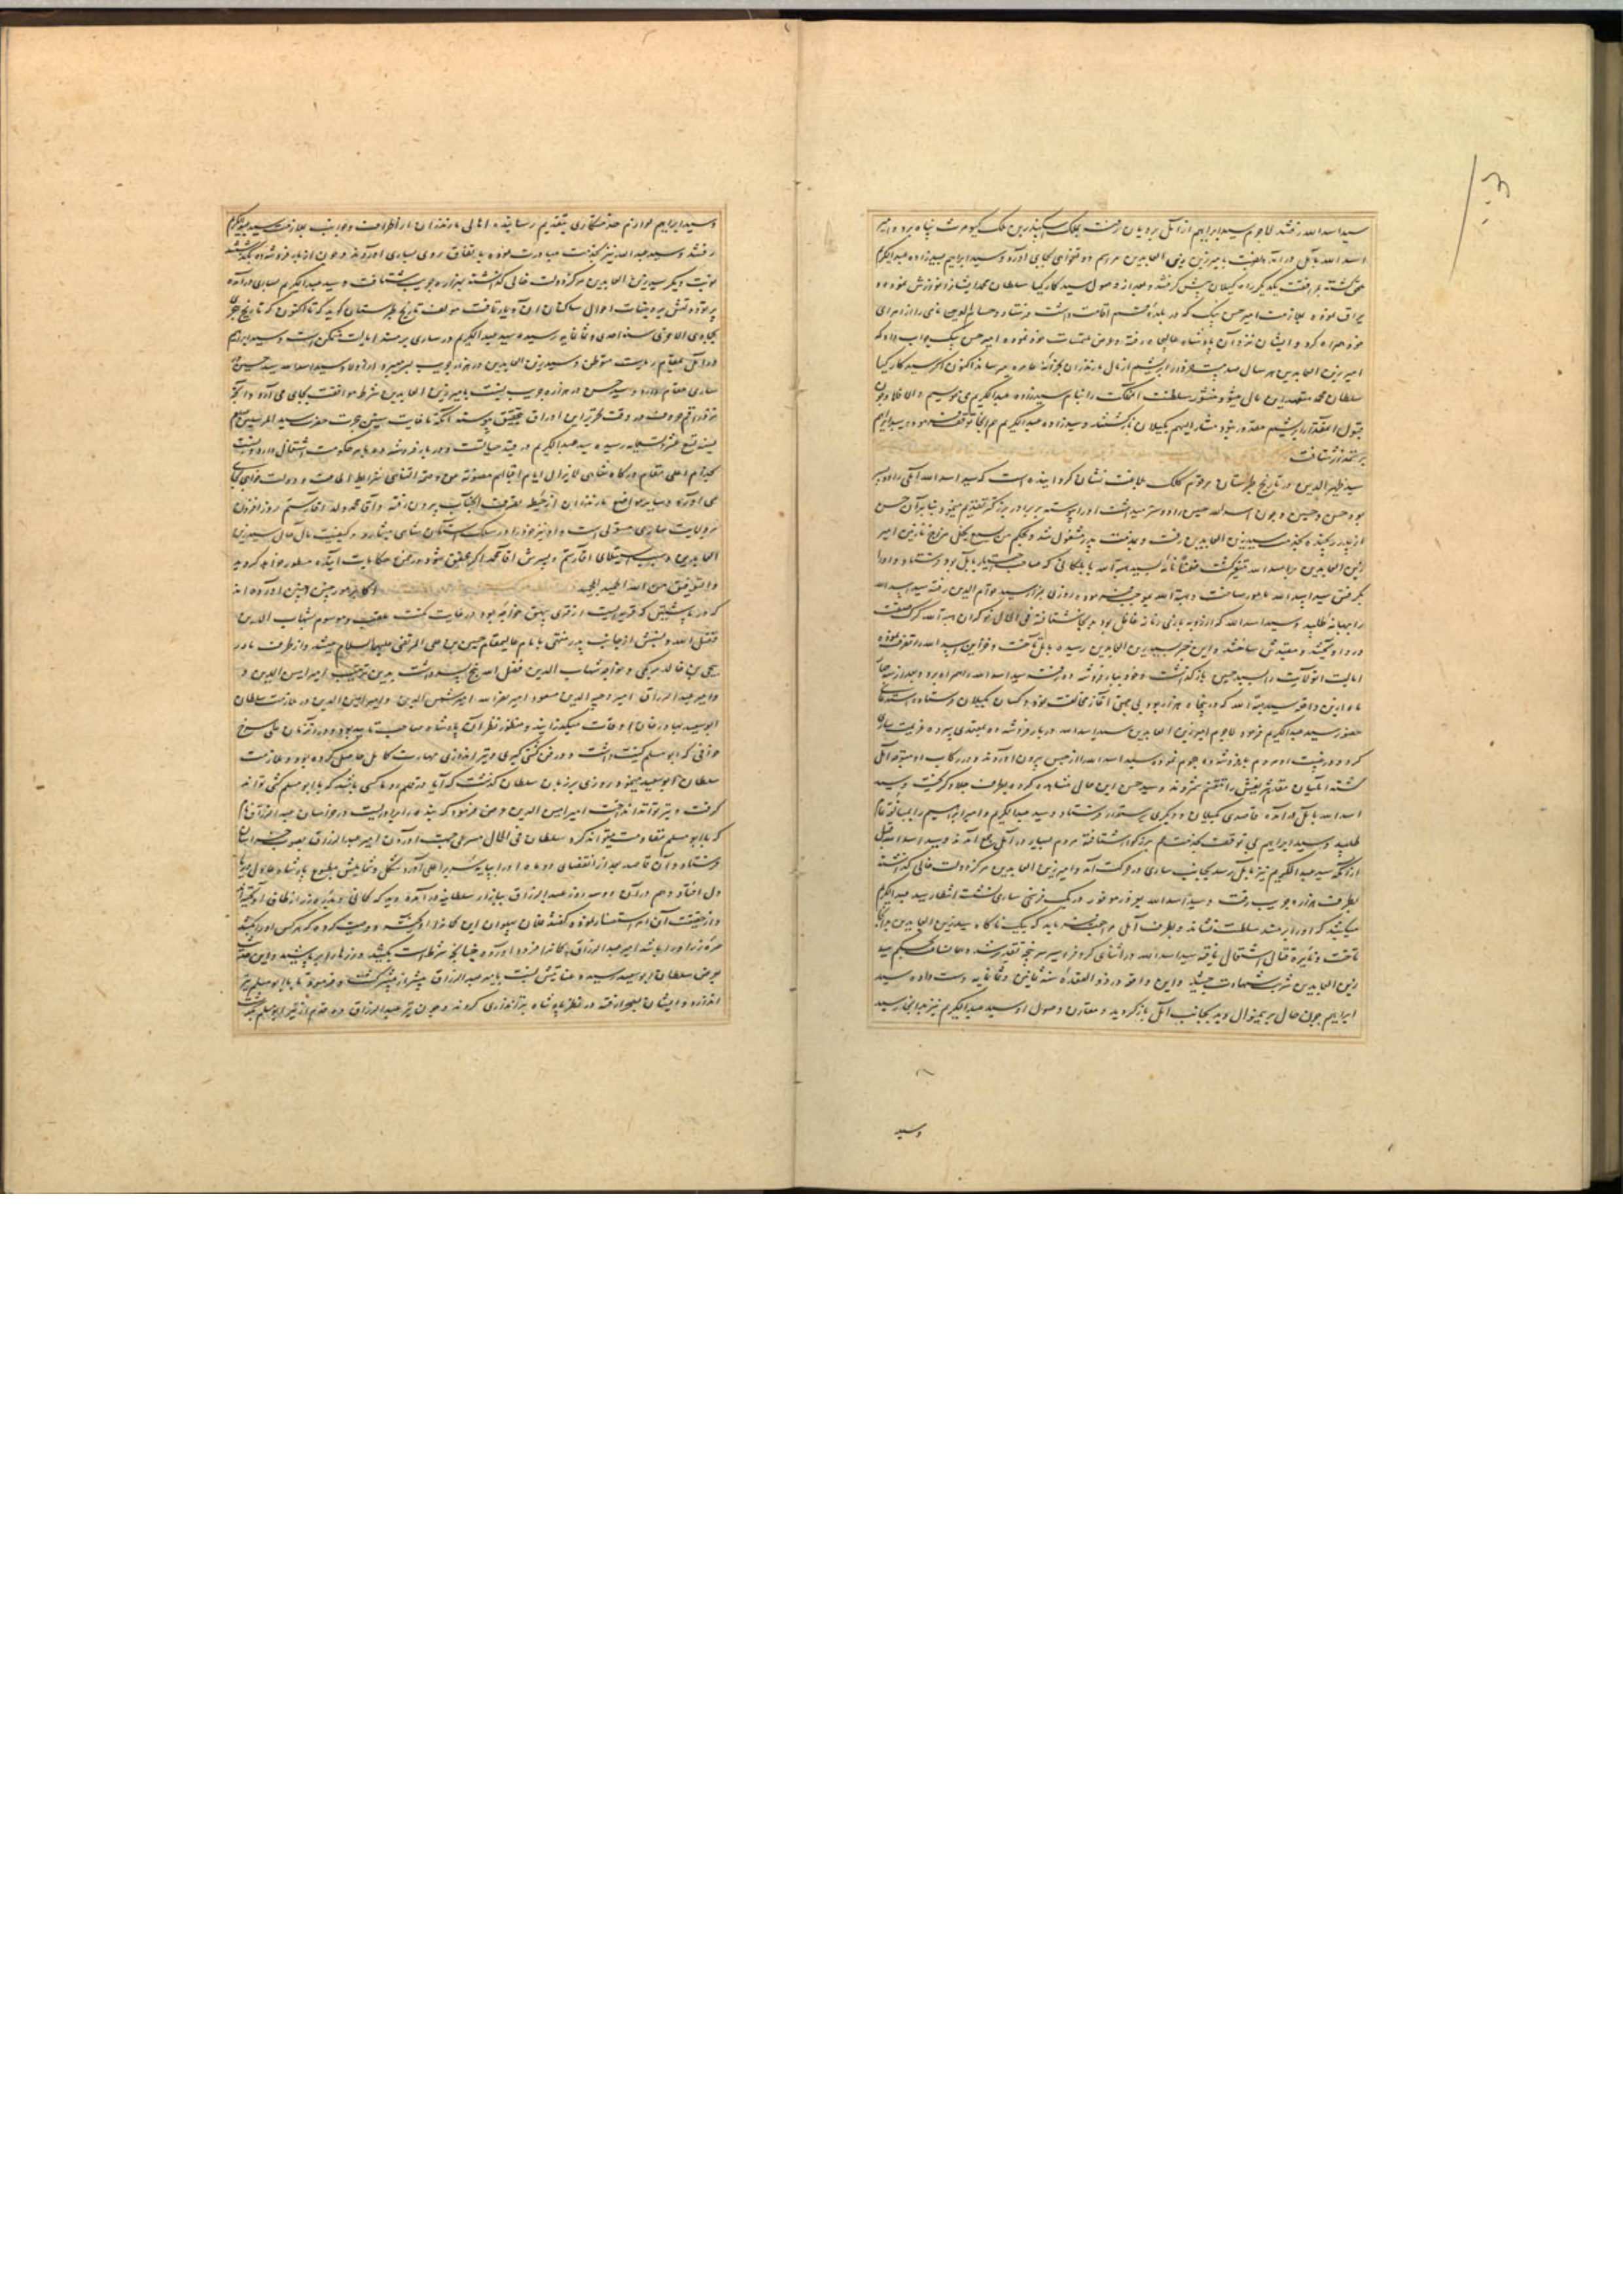 ۱۰۳
سید اسد الله رفتند لاجرم سید ابراهیم از آمل برویان رفت بملک اسکندر بن ملک کیومرث پناه برد و امیر
اسد الله بآمل درآمد و امیر زین العابدین و سید ابراهیم سیدزاده عبد الکریم
ملحق گشته بمرافقت یکدیگر راه گیلان پیش گرفتند و بعد از وصول سید کارکیا سلطان محمد ایشانرا نوازش نموده
یراق نموده بملازمت امیر حسن بیک که در بلده قم اقامت داشت فرستاد و نامی را از امرای
خود همراه کرد و ایشان نزد آن پادشاه عالیجاه رفته و عرض ملتمسات خود نموده امیر حسن بیک جواب داد که
امیر زین العابدین هر سال ابریشم از مال مازندران بخزانه عامره میرساند اکنون اگر سید کارکیا
سلطان محمد متعهد این مال میشود منشور سلطنت آن مملکت را بنام سیدزاده عبد الکریم می نویسیم والا فلا و چون
قبول آن مقدار ابریشم مقدور نبود مشار الیهم بگیلان بازگشتند و سیدزاده عبد الکریم هم آنجا توقف نموده و سید ابراهیم
برستمدار شتافت
سید ظهیر الدین در تاریخ طبرستان مرقوم کلک بلاغت نشان گردانیده است که سید اسد الله آملی را دو پسر
بود حسن و حسین و چون اسد الله حسین را دوستر میداشت او را پیوسته بر برادر بزرگتر تقدیم مینمود بنابر آن حسن
از پدر رنجیده بخدمت سید زین العابدین رفت و بمذمت پدر مشغول شد و بحکم من یسمع یخل مزاج نازنین امیر
زین العابدین بر سید اسد الله متغیر گشت سید هبة الله بابلکانی که صاحب اختیار بابل بود فرستاد و او را
بگرفتن سید اسد الله مامور ساخت و هبة الله بموجب فرموده روزی بمزار سید قوام الدین رفته سید اسد الله
را ببهانه طلبید و سید اسد الله که از بازی زمانه غافل بود بدانجا شتافته فی الحال نوکران هبة الله
در و آویختند و مقیدش ساختند و این خبر بسید زین العابدین رسیده بآمل تاخت و خزاین سید اسد الله را تصرف نموده
ایالت آن ولایت را بسید حسن باز گذاشت و خود ببارفروش ده رفته سید اسد الله را همراه برد و بعد از
ماه ازین واقعه سید هبة الله که در پنجاه هزار بود بی جهتی آغاز مخالفت نموده و کسان بگیلان فرستاده استدعای
حضور سید عبد الکریم فرمود لاجرم امیر زین العابدین سید اسد الله در بارفروش ده بمعتمدی سپرده عزیمت ساری
کرد و در غیبت او مردم بارفروش ده هجوم نموده سید اسد الله را از حبس بیرون آوردند و در رکاب او متوجه آمل
گشتند آملیان مقدم شریفش را مغتنم شمردند و سید حسن این حال مشاهده کرده بطرف جلاو گریخت و سید
اسد الله بآمل درآمده قاصدی بگیلان و دیگری برستمدار فرستاد و سید عبد الکریم و امیر ابراهیم را
طلبید و سید ابراهیم بی توقف بخدمت عم بزرگوار شتافته مردم بسیار در آمل جمع آمدند و سید اسد الله قبل
از آنکه سید عبد الکریم نیز بآمل رسد بجانب ساری در حرکت آمد و امیر زین العابدین مرکز دولت خالی گذاشته
بطرف هزار جریب رفت و سید اسد الله در یک فرسخی ساری نشست انتظار سید عبد الکریم
میکشید که او را بر مسند سلطنت نشاند و بطرف آمل مراجعت نماید که بیک ناگاه سید زین العابدین بر آنجا
تاخت و نایره قتال اشتعال یافته سید اسد الله در اثنای کر و فر اسیر سرپنجه تقدیر شده بحکم سید
زین العابدین شربت شهادت چشید و این واقعه در ذو القعده سنه ثمانین و ثمانمایه دست داده سید
ابراهیم چون حال بر منوال دید بجانب آمل بازگردید و مقارن وصول او سید عبد الکریم نیز بدانجا رسید
وسید
وسید ابراهیم لوازم خدمتکاری بتقدیم رسانیده اهالی مازندران از اطراف و جوانب بملازمت سید عبد الکریم
رفتند و سید عبد الله نیز بخدمت مبادرت نموده باتفاق روی بساری آوردند و چون از بارفروش ده بگذشتند
نوبت دیگر سید زین العابدین مرکز دولت خالی گذاشته بهزار جریب شتافت و سید عبد الکریم بساری درآمده
پرتو دولتش بر وجنات احوال ساکنان آن دیار تافت مولف تاریخ طبرستان گوید که تا اکنون که تاریخ هجری
بجمادی الاخری سنه احدی و ثمانمایه رسیده سید عبد الکریم در ساری بر مسند ایالت متمکن است و سید ابراهیم
در آمل بمقام ریاست متوطن و سید زین العابدین در هزار جریب بسر میبرد و از اولاد سید اسد الله سید حسین در
ساری مقام دارد و سید حسن در هزار جریب نسبت بامیر زین العابدین شرط موافقت بجای می آورد و آنچه
مسود اوراق در وقت تحریر این اوراق بتحقیق پیوسته آنکه تا غایت سنین هجرت حضرت سید المرسلین صلعم
بسنه تسع عشر و تسعمایه رسیده سید عبد الکریم در قید حیاتست و در بارفروش ده بامر حکومت اشتغال دارد و نسبت
بخدام اعلی مقام درگاه شاهی لایزال ایام اقباله مصونة من وصمة التناهی شرایط اطاعت و دولتخواهی بجای
می آورد و سایر مواضع مازندران از حیطه تصرف آنجناب بیرون رفته و آقا محمد ولد آقا رستم روزافزون
بر ولایت ساری مستولی است و او نیز خود را در سلک بستگان شاهی میشمارد و کیفیت مآل حال سید زین
العابدین و سبب استیلای آقا رستم و پسرش آقا محمد اگر محقق شود در ضمن حکایات آینده مسطور خواهد گردید
والتوفیق من الله الحمید المجید
که در باشتین که قریه ایست از قرای بیهق خواجه بود در غایت مکنت و موسوم بشهاب الدین
فضل الله و نسبش از جانب پدر منتهی بامام عالیمقام حسین بن علی المرتضی علیهما السلام میشد و از طرف مادر
بیحیی بن خالد برمکی و خواجه شهاب الدین فضل الله پنج پسر داشت بدین ترتیب امیر امین الدین و
و امیر عبد الرزاق امیر وجیه الدین مسعود امیر نصر الله امیر شمس الدین و امیر امین الدین در ملازمت سلطان
ابوسعید بهادر خان اوقات میگذرانید و منظور نظر آن پادشاه صاحب تایید بود و در آن زمان علی سرخ
خوافی که ابو مسلم کنیت داشت و در فن کشتی گیری و تیر اندازی مهارت کامل حاصل کرده بود در ملازمت
سلطان ابوسعید میبود روزی بر زبان سلطان گذشت که آیا در قلمرو ما کسی باشد که با ابو مسلم کشتی تواند
گرفت و تیر تواند انداخت امیر امین الدین عرض فرمود که بنده را برادریست در خراسان عبد الرزاق نام
که با ابو مسلم مقاومت میتواند کرد سلطان فی الحال مسرعی جهت آوردن امیر عبد الرزاق بصوب خراسان
فرستاد و آن قاصد بعد از انقضای دو ماه او را بپایه سریر اعلی آورد شکل و شمایلش مطبوع پادشاه
دل افتاد و هم در آن دو سه روز عبد الرزاق ببازار سلطانیه درآمده دید که کمانی از طاق آویخته
و از حقیقت آن استفسار نموده گفتند فلان پهلوان این کمانرا آویخته و وصیت کرده که هر کس او را بکشد
زر او را باشد امیر عبد الرزاق کمانرا فرود آورده چنانچه شرط است بکشید و زرها بر پاشید و این خبر
بعرض سلطان ابوسعید رسیده عنایتش نسبت بامیر عبد الرزاق بیشتر از پیشتر گشت و فرمود تا با ابو مسلم تیر
اندازد و ایشان بصحرا رفته در نظر پادشاه تیراندازی کردند و چون تیر عبد الرزاق ده قدم از تیر ابو مسلم